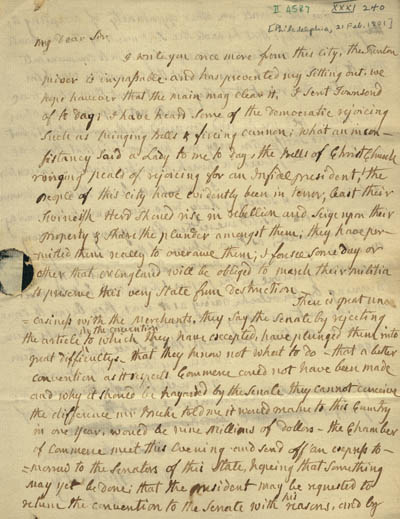 II 4587 XXXI 240
[Philadelphia, 21 Feb. 1801]
My dear Sir,
I write you once more from this city, the Trenton
river is impassable and has prevented my setting out; we
hope however that the rain may clear it, I sent Townsend
of to day; I have heard some of the democratic rejoicing
such as Ringing Bells & fireing cannon; what an incon-
sistancy said a Lady to me to day, the Bells of Christ Church
ringing peals of rejoicing for an Infidel president; the
people of this city have evidently been in terror, least their
Swineish Herd should rise in rebellion and seize upon their
property & share the plunder amongst them; they have per-
mitted them really to overawe them; I foresee some day or
other that N England will be obliged to march their militia
to preserve this very State from destruction—
There is great una-
=easiness with the Merchants, they say the Senate by rejecting
the article in the convention to which they have excepted, have plunged them into
great difficulty— that they know not what to do— that a better
convention as it respects Commerce could not have been made
and why it should be hazarded by the Senate they cannot conceive
the difference mr Breck told me it would make to this Country
in one year, would be nine Millions of dollars— the Chamber
of Commerce meet this Evening and send off an express to-
=morrow to the Senators of this State, hopeing that something
may yet be done; that the President may be requested to
return the convention to the Senate with his reasons, and by